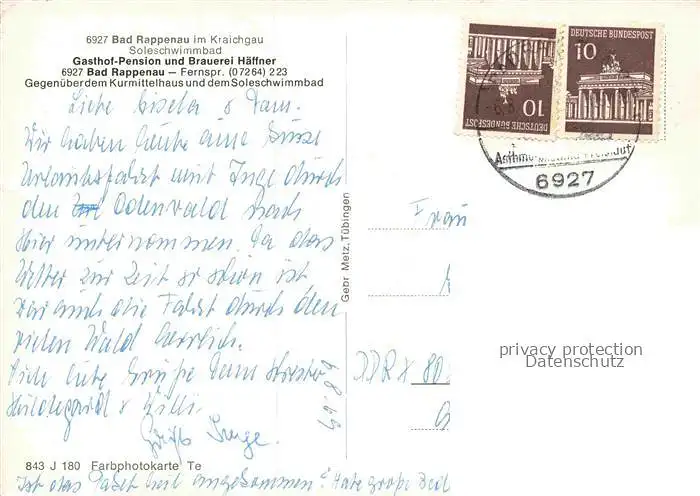 6927 Bad Rappenau im Kraichgau
Soleschwimmbad
Gasthof-Pension und Brauerei Häffner
6927 Bad Rappenau — Fernspr. (07264) 223
Gegenüber dem Kurmittelhaus und dem Soleschwimmbad
Liebe Gisela & Fam.
Wir haben heute eine
Urlaubsfahrt mit Inge durch
den Odenwald nach
hier unternommen. Da das
Wetter zur Zeit so schön ist
war auch die Fahrt durch den
vielen Wald herrlich.
Grüße
Hildegard & Willi.
Inge.
6.8.69
843 J 180 Farbphotokarte Te
Ist das Paket heil angekommen? Habe große
Gebr Metz, Tübingen
DEUTSCHE BUNDESPOST
10
DEUTSCHE BUNDESPOST
10
6927
Frau
DDR X 80
privacy protection
Datenschutz